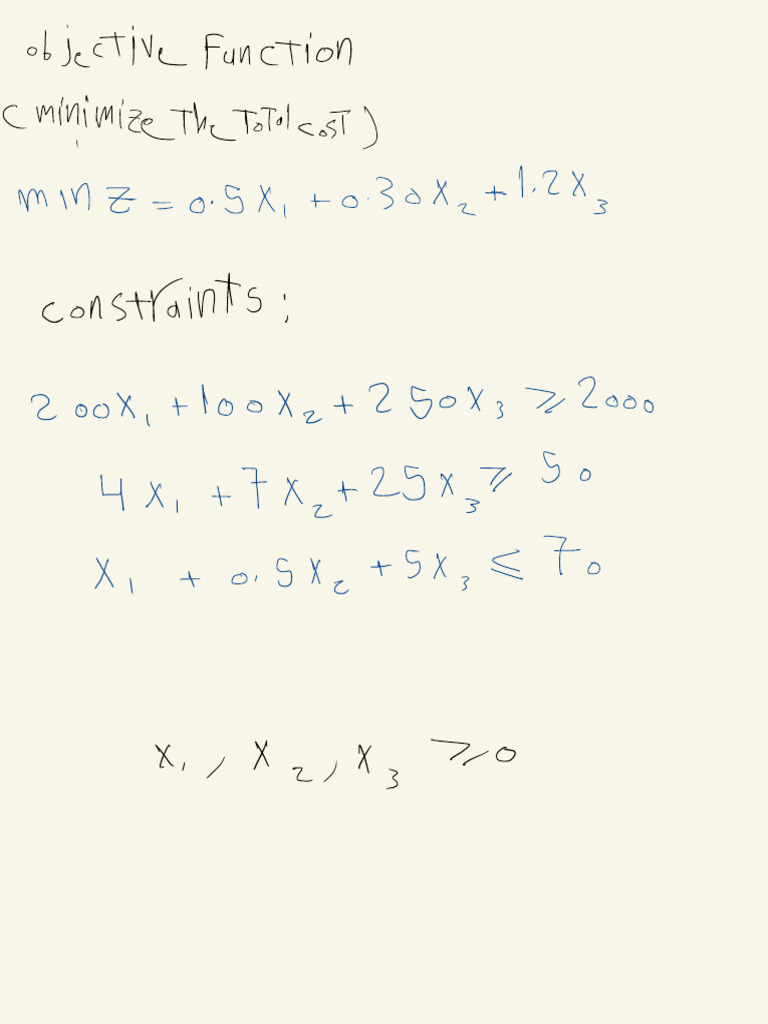 objective Function
(minimize The Total cosT)
min z = 0.5x₁ + 0.30x₂ + 1.2x₃
constraints:
200x₁ + 100x₂ + 250x₃ ≥ 2000
4x₁ + 7x₂ + 25x₃ ≥ 50
x₁ + 0.5x₂ + 5x₃ ≤ 70
x₁, x₂, x₃ ≥ 0